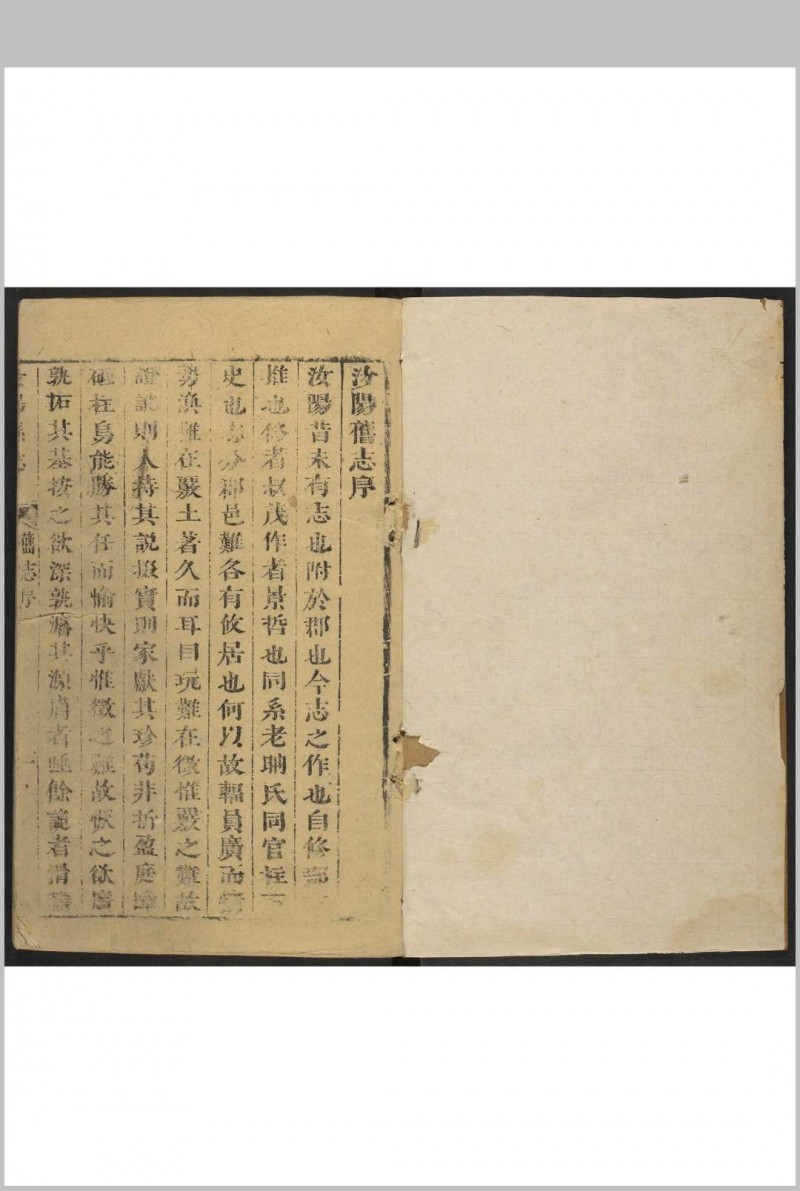 汝陽舊志序
汝陽昔未有志也附於郡也今志之作也自修
推也修者叔茂作者景哲也同系老聃氏同官柱下
史也志分郡邑難各有攸居也何以故輻員廣而
勢渙難在覈土著久而耳目玩難在徵惟覈之難故
證訛則人持其說摭實則家獻其珍苟非折盈庭
砥柱烏能勝其任而愉快乎惟徵之難故恢之欲
孰拓其基按之欲深孰濬其源膚者唾餘誕者滑
舊志序
一